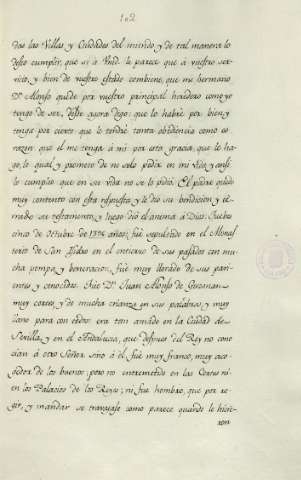 102
dos las Villas y Ciudades del mundo y de tal manera lo
deseo cumplir, que si à Vmd. le parece que à vuestro ser-
vicio, y bien de vuestro estado combiene, que mi hermano
Dn. Alonso quede por vuestro principal heredero como yo
tengo de ser, desde agora digo: que lo habré por bien y
tenga por cierto que le tendré tanta obediencia como es
razon que el me tenga à mi por esta gracia, que le ha-
go, lo qual y prometo de no solo pedir en mi vida, y ansi
lo cumplio que en su vida no se lo pidió. El padre quedó
muy contento con esta respuesta y le dió su bendicion y or-
denado su testamento, y luego dió el anima à Dios. Jueves
cinco de octubre de 13 años; fué sepultado en el Monas-
terio de San Isidro en el entierro de sus pasados con mu-
cha pompa, y veneracion, fué muy llorado de sus pari-
entes y conocidos. Fue Dn. Juan Alonso de Guzman
muy cortes, y de mucha crianza en sus palabras, y muy
llano para con todos: era tan amado en la Ciudad de
Sevilla, y en el Andalucia, que despues del Rey no cono-
cian à otro Señor sino à el: fué muy franco, muy aco-
gedor de los buenos; pero no entremetido en las Cortes ni
en los Palacios de los Reyes; ni fue hombre, que por re-
gir, y mandar se trabajase como parece quando le hicie-
ron